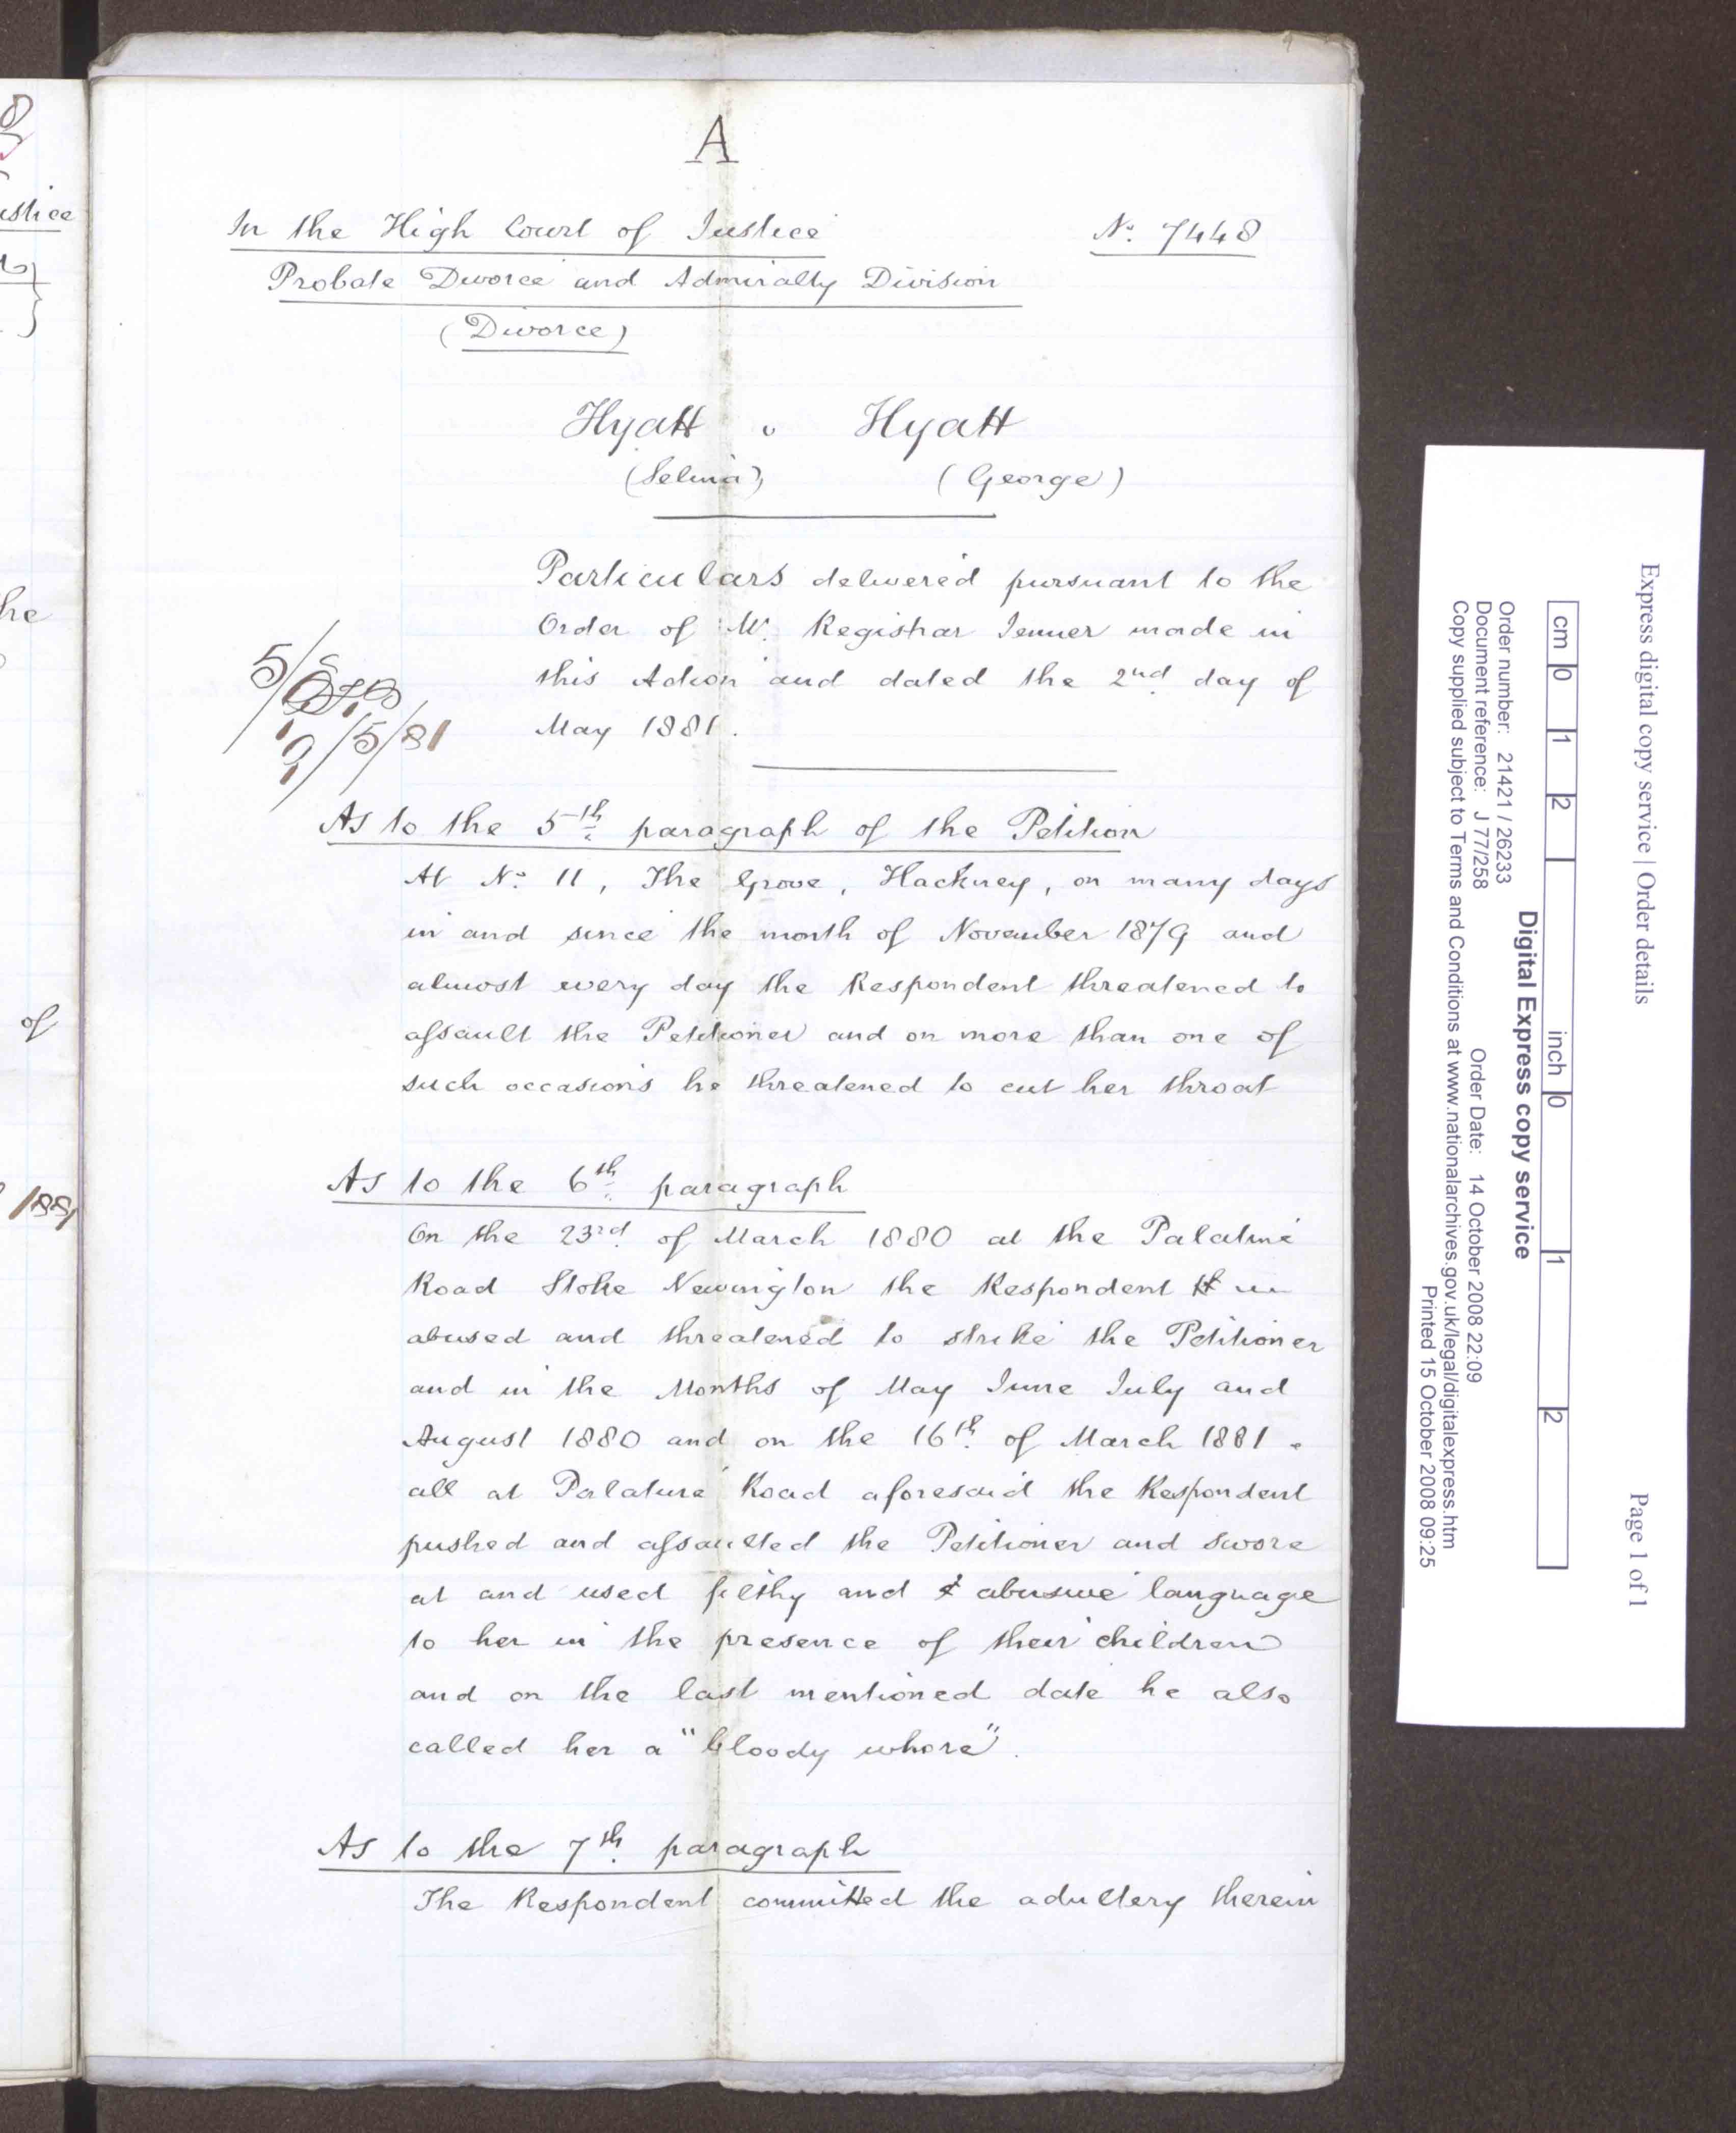 A
In the High Court of Justice
No. 7448
Probate Divorce and Admiralty Division
(Divorce)
Hyatt v Hyatt
(Selina) (George)
Particulars delivered pursuant to the
Order of Mr. Registrar Jenner made in
this Action and dated the 2nd day of
May 1881.
5/
9/5/81
As to the 5th paragraph of the Petition
At No. 11, The Grove, Hackney, on many days
in and since the month of November 1879 and
almost every day the Respondent threatened to
assault the Petitioner and on more than one of
such occasions he threatened to cut her throat
As to the 6th paragraph
On the 23rd of March 1880 at the Palatine
Road Stoke Newington the Respondent
abused and threatened to strike the Petitioner
and in the Months of May June July and
August 1880 and on the 16th of March 1881.
all at Palatine Road aforesaid the Respondent
pushed and assaulted the Petitioner and swore
at and used filthy and abusive language
to her in the presence of their children
and on the last mentioned date he also
called her a "bloody whore".
As to the 7th paragraph
The Respondent committed the adultery therein
ustice
he
of
188
Express digital copy service | Order details
Page 1 of 1
cm 0 1 2
inch 0 1 2
Digital Express copy service
Order number: 21421 / 26233
Order Date: 14 October 2008 22:09
Document reference: J 77/258
Copy supplied subject to Terms and Conditions at www.nationalarchives.gov.uk/legal/digitalexpress.htm
Printed 15 October 2008 09:25